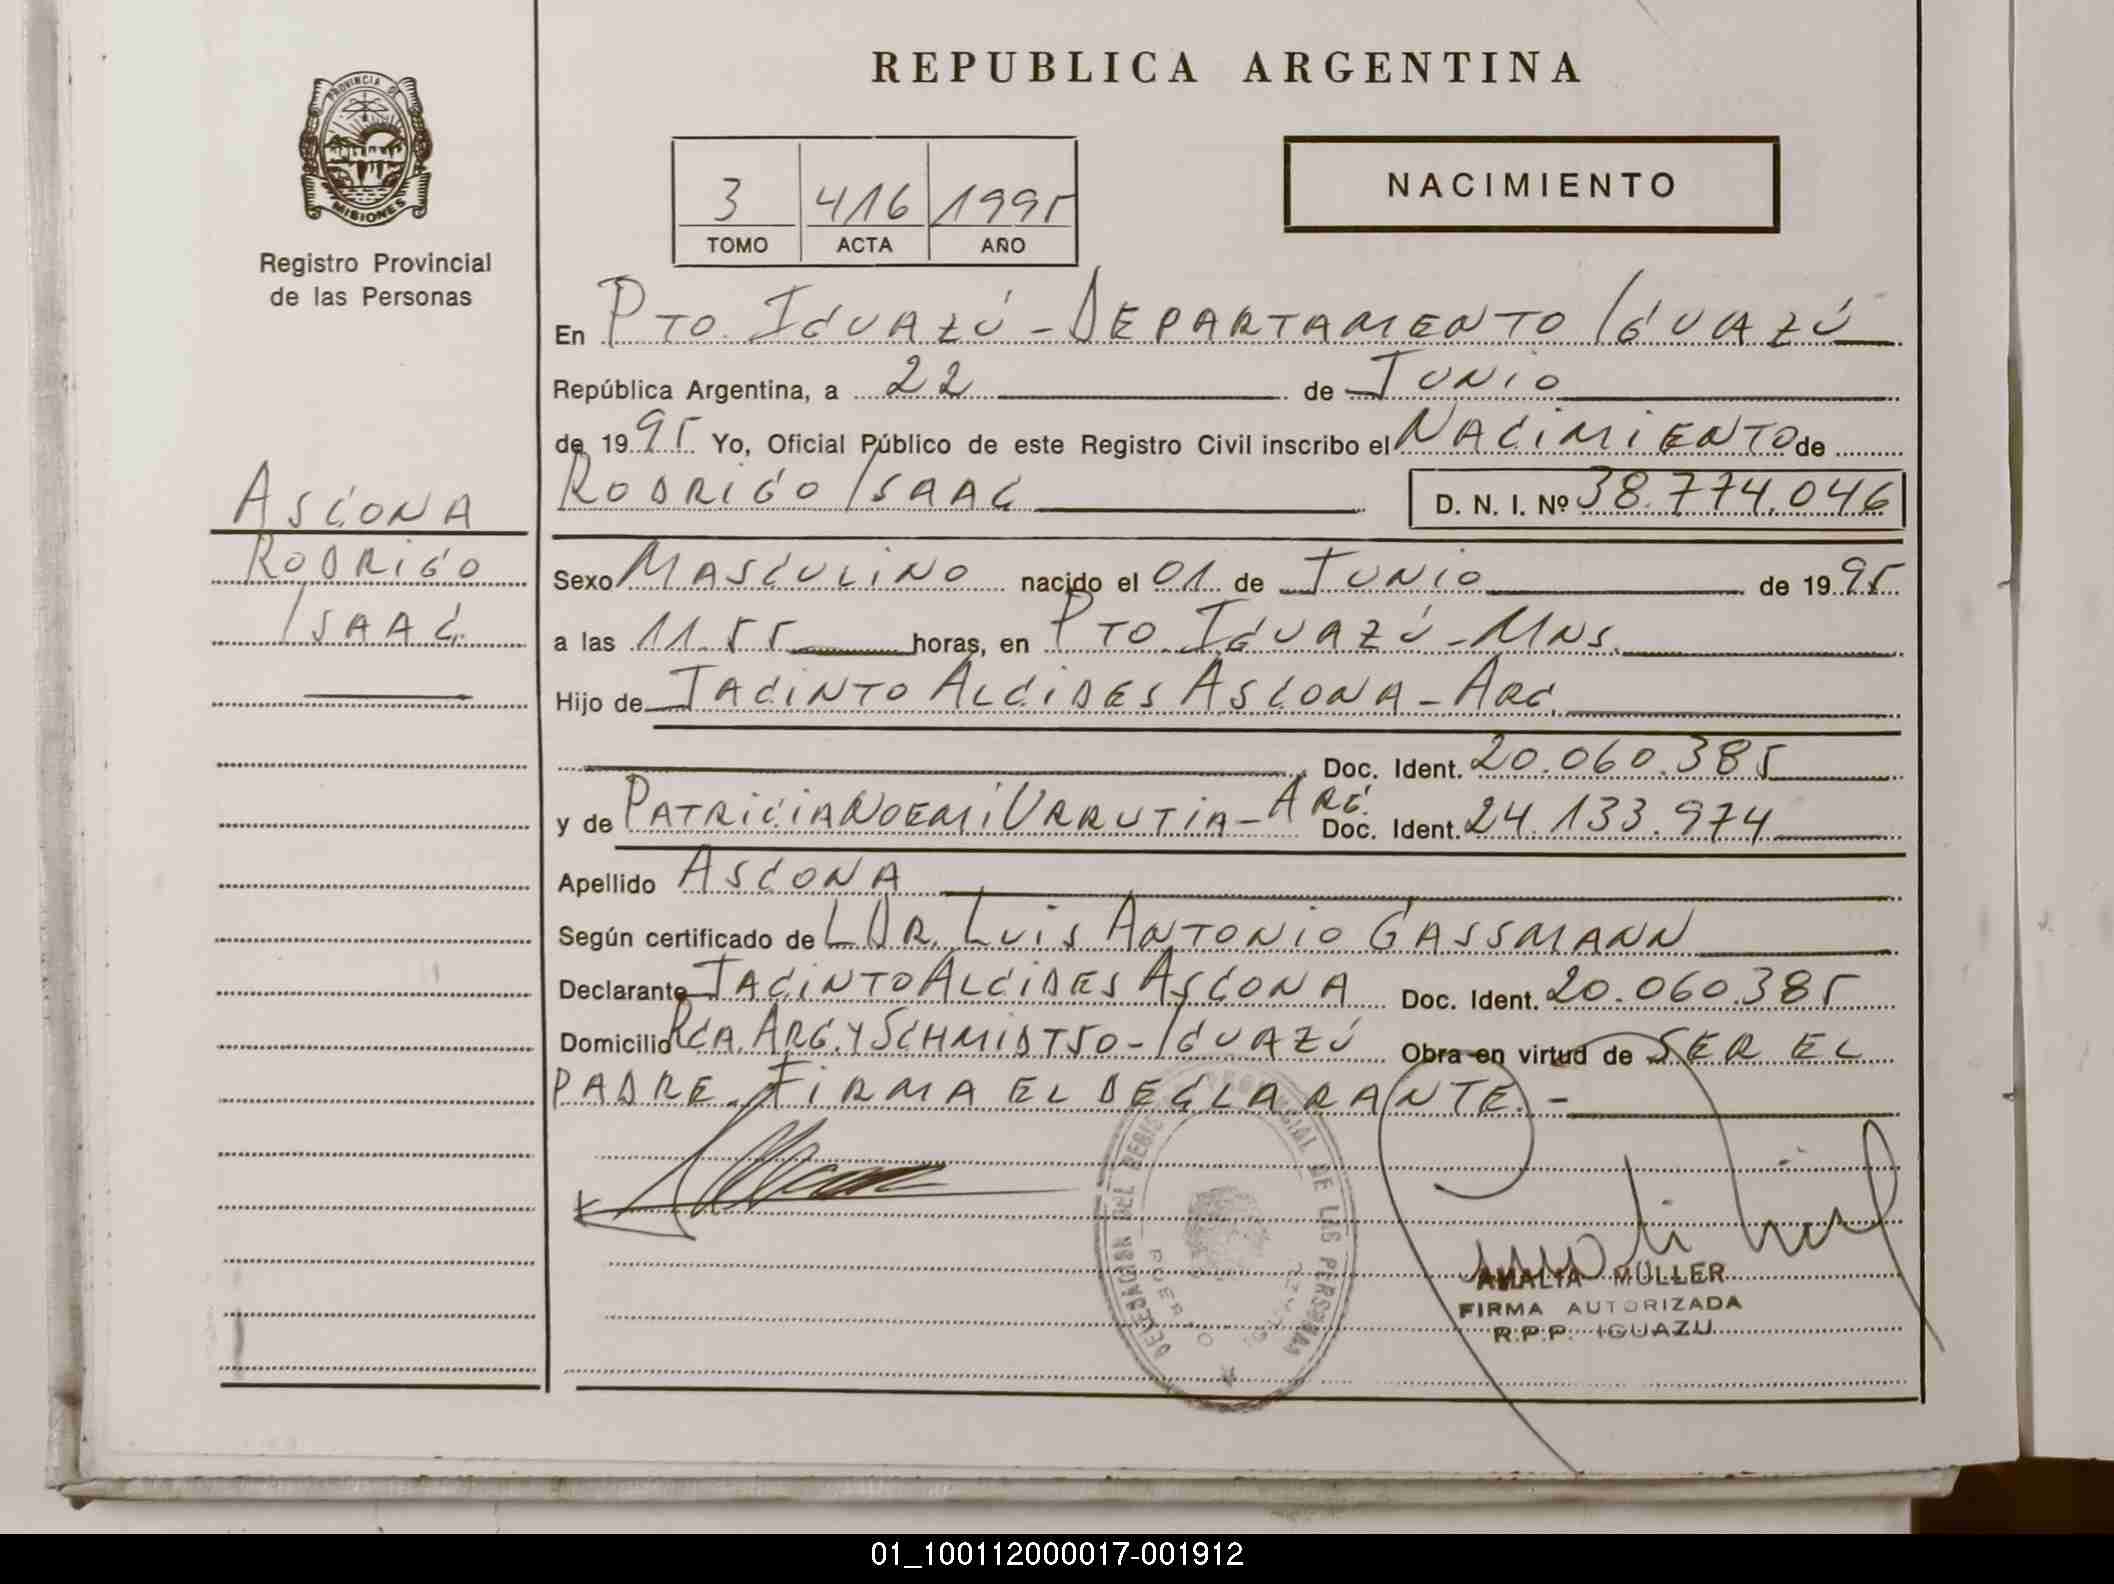 PROVINCIA DE
MISIONES
Registro Provincial
de las Personas
ASCONA
RODRIGO
ISAAC
REPUBLICA ARGENTINA
3 416 1995
TOMO ACTA AÑO
NACIMIENTO
En PTO. IGUAZÚ - DEPARTAMENTO IGUAZÚ
República Argentina, a 22 de JUNIO
de 1995 Yo, Oficial Público de este Registro Civil inscribo el NACIMIENTO de
RODRIGO ISAAC D. N. I. Nº 38.774.046
Sexo MASCULINO nacido el 01 de JUNIO de 1995
a las 11.55 horas, en PTO. IGUAZÚ - MNS.
Hijo de JACINTO ALCIDES ASCONA - ARG.
Doc. Ident. 20.060.385
y de PATRICIA NOEMI URRUTIA - ARG. Doc. Ident. 24.133.974
Apellido ASCONA
Según certificado de L DR. LUIS ANTONIO GASSMANN
Declarante JACINTO ALCIDES ASCONA Doc. Ident. 20.060.385
Domicilio RCA. ARG. Y SCHMIDT 50 - IGUAZÚ Obra en virtud de SER EL
PADRE. FIRMA EL DECLARANTE. -
DELEGACION DEL REGISTRO PROVINCIAL DE LAS PERSONAS
PUERTO IGUAZU
AMALIA MULLER
FIRMA AUTORIZADA
R.P.P. IGUAZU
01_100112000017-001912